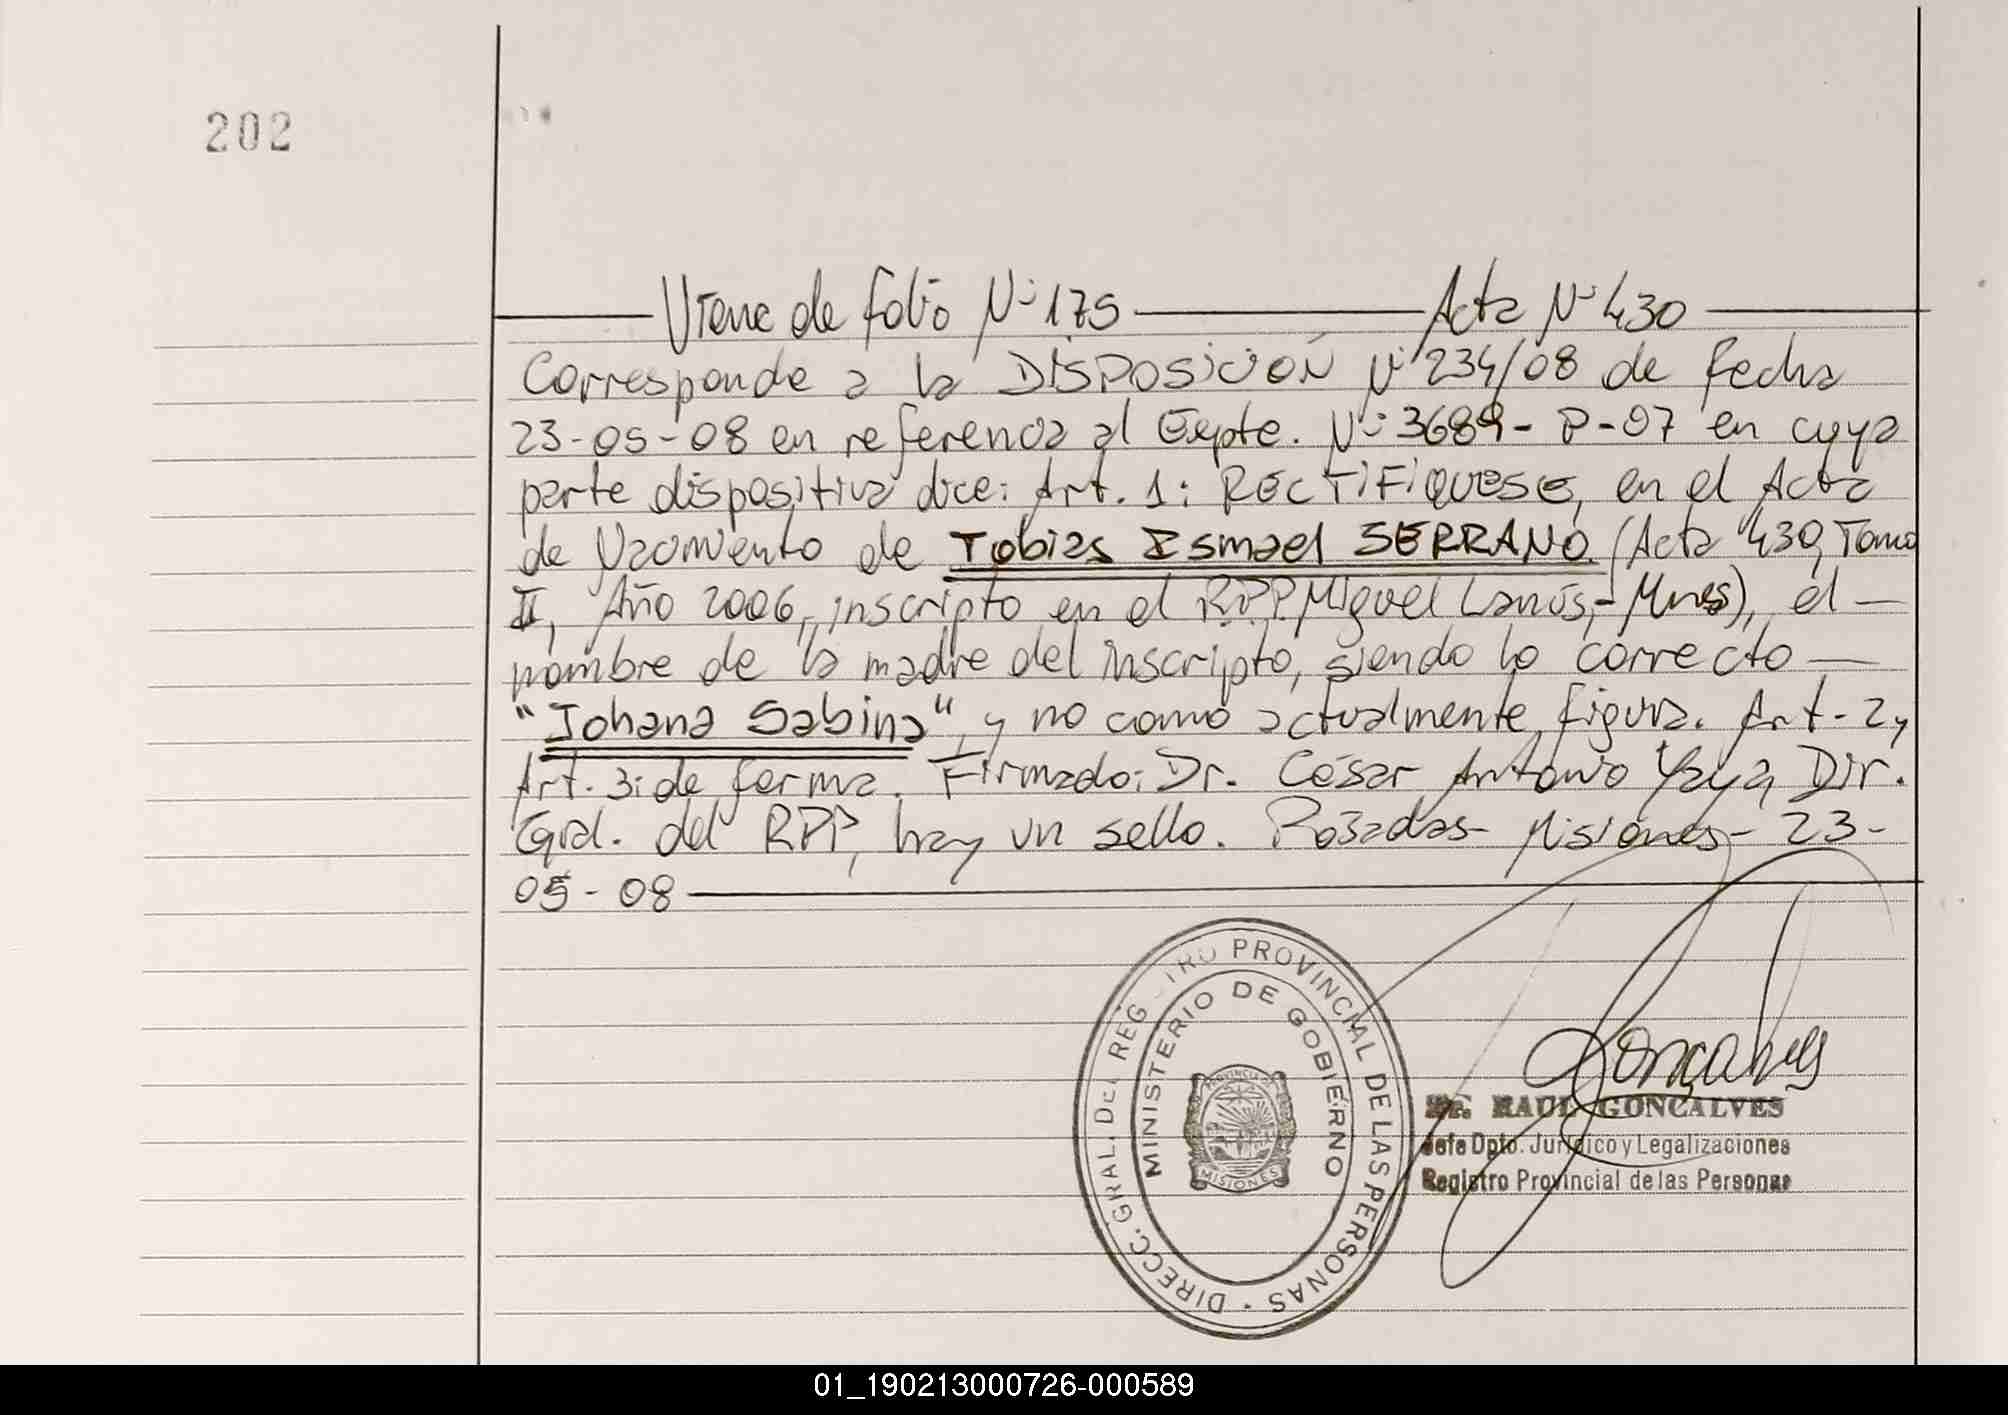 202
Viene de folio Nº 175 Acta Nº 430
Corresponde a la DISPOSICIÓN Nº 234/08 de fecha
23-05-08 en referencia al Expte. Nº 3689-P-07 en cuya
parte dispositiva dice: Art. 1: RECTIFIQUESE, en el Acta
de Nacimiento de Tobias Ismael SERRANO (Acta 430, Tomo
II, Año 2006, inscripto en el RPP. Miguel Lanús,- Mnes), el
nombre de la madre del inscripto, siendo lo correcto
"Johana Sabina", y no como actualmente figura. Art-2 y
Art. 3: de forma. Firmado: Dr. César Antonio Yaya, Dir.
Gral. del RPP, hay un sello. Posadas- Misiones- 23-
05-08
DIRECC. GRAL. DEL REGISTRO PROVINCIAL DE LAS PERSONAS
MINISTERIO DE GOBIERNO
PROVINCIA DE
MISIONES
Goncalves
Dr. RAUL GONCALVES
Jefe Dpto. Jurídico y Legalizaciones
Registro Provincial de las Personas
01_190213000726-000589